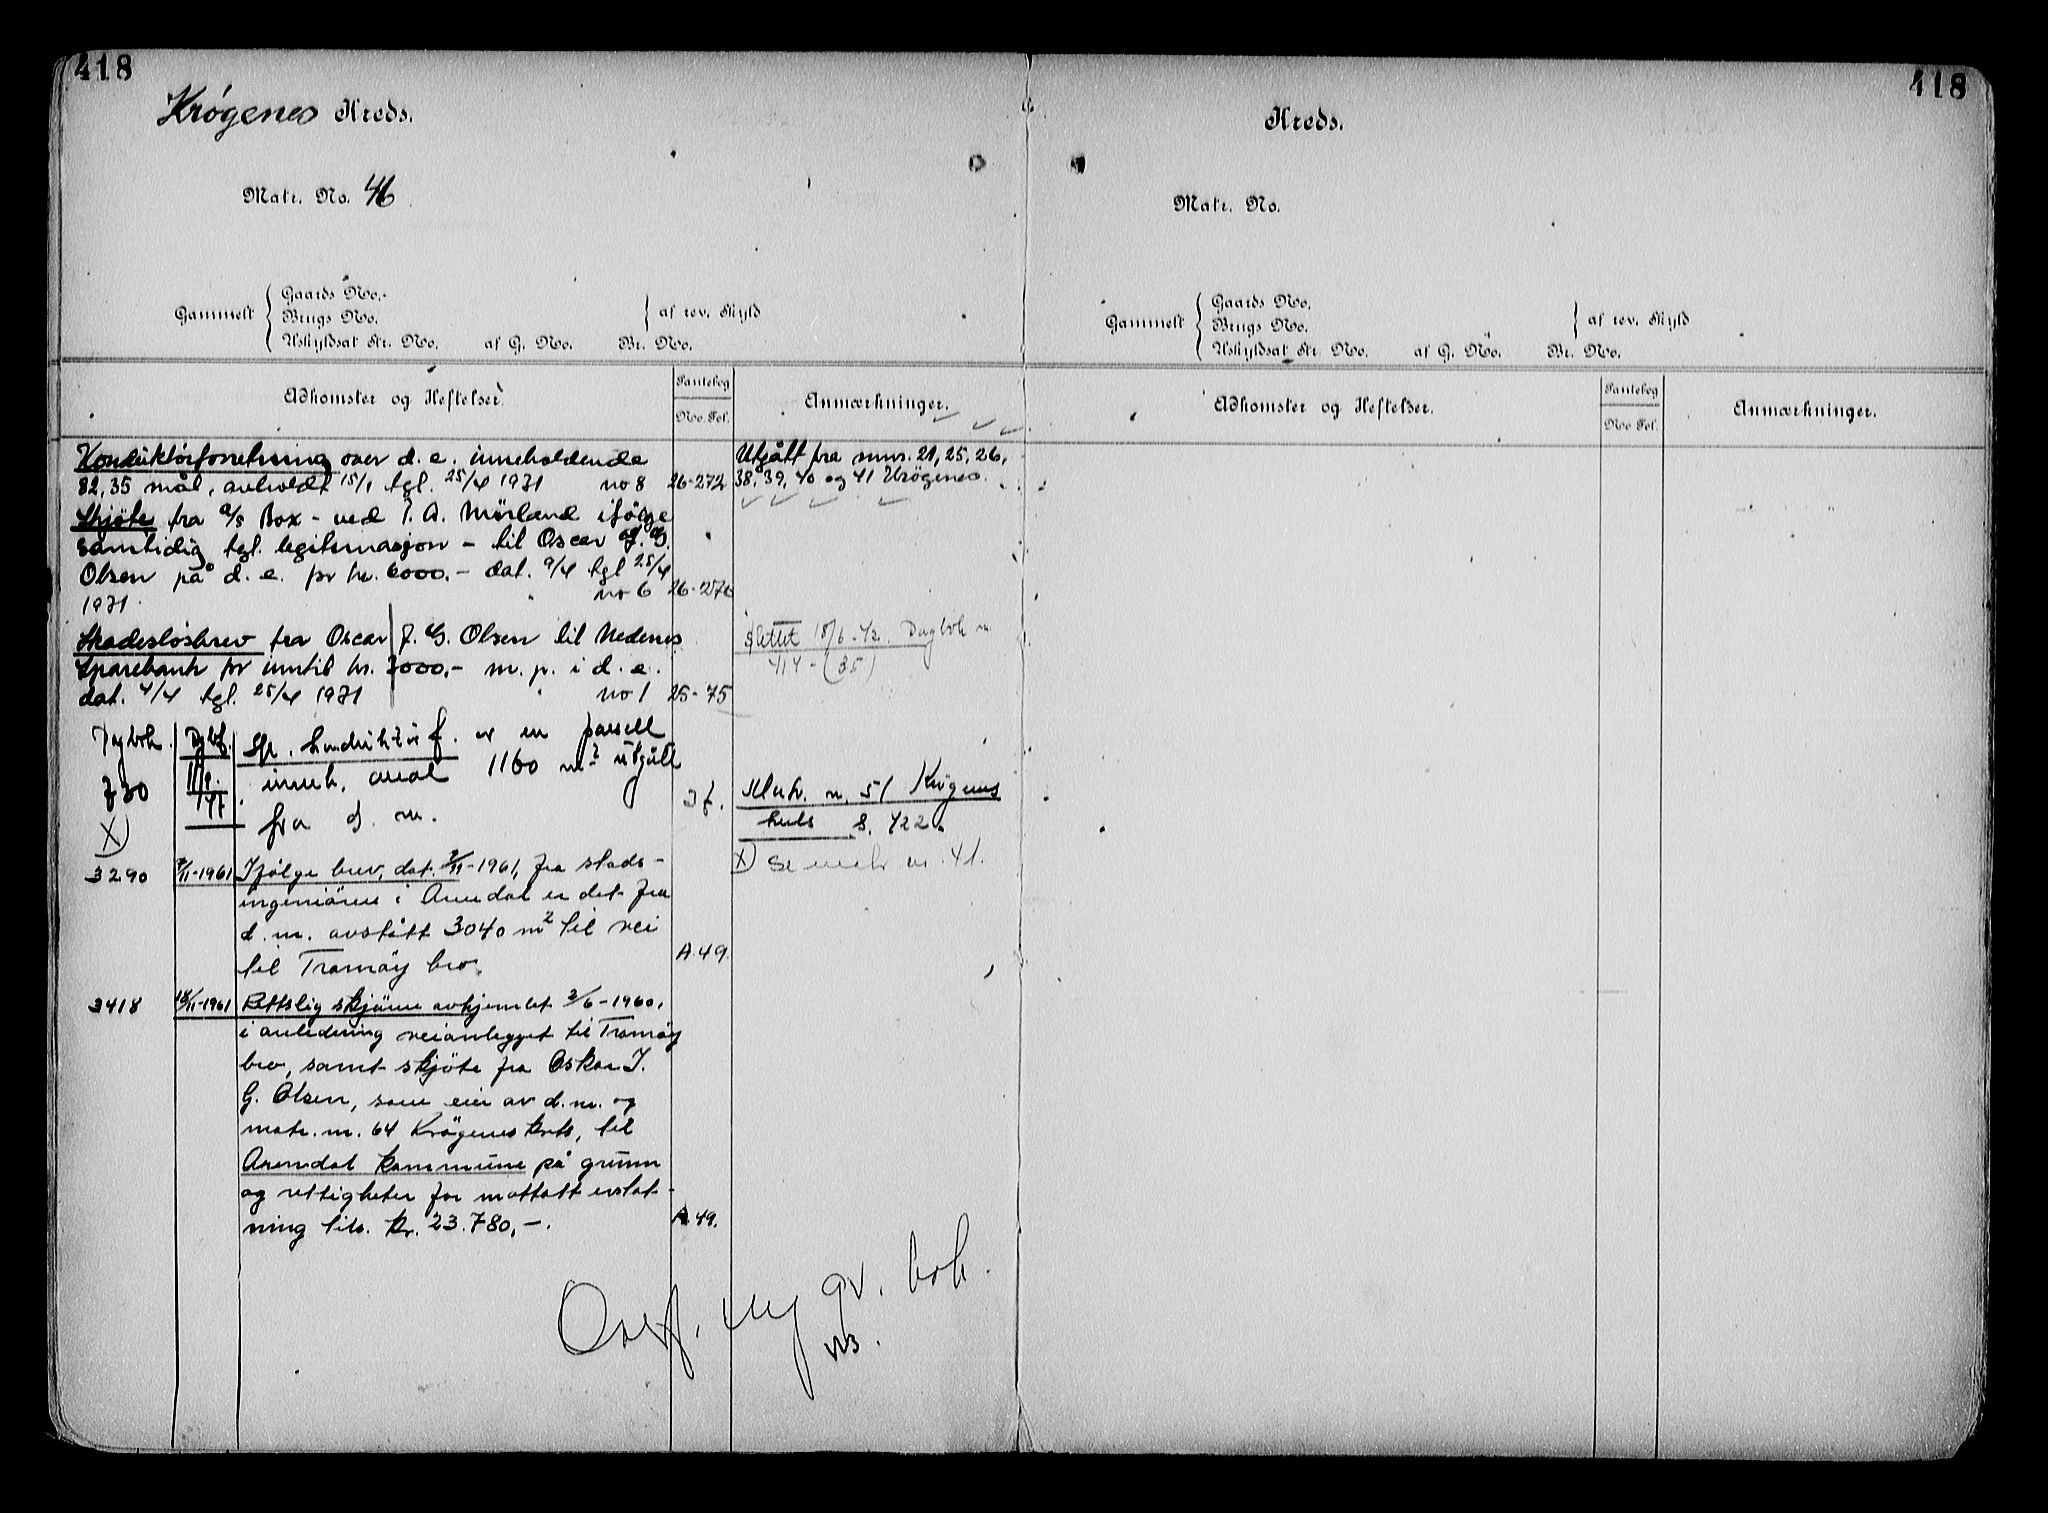 418
Krógenes Kreds.
Matr. No. 46
Gammelt
Gaards No.
Brugs No.
Uskyldsat Str. No. af G. No. Br. No.
af rev. Skyld
Adkomster og Heftelser.
Pantebog
No Fol.
Anmærkninger.
Konduktörforretning over d. e. inneholdende
82,35 mål, avholdt 15/1 tgl. 25/4 1931 no 8 26-272
Skjöte fra a/s Box - ved T. A. Mörland ifölge
samtidig tgl. legitimasjon - til Oscar J. G.
Olsen på d. e. for kr. 6000.- dat. 9/4 tgl 25/4
1931. no 6 26-276
Skadeslósbrev fra Oscar J. G. Olsen til Nedenes
Sparebank for inntil kr. 3000.- m. p. i d. e.
dat. 4/4 tgl. 25/4 1931 no 1 25-75
Utgått fra mnr. 21, 25, 26,
38, 39, 40 og 41 Krögenes.
Slettet 18/6-42. Dagbok n.
414-(35)
Dagbok. Dgbf.
730
X)
Sk. konduktörf. ov en parsell
inneh. areal 1160 m² utgått
fra d. m.
Matr. n. 51 Krögenes
kreds S. 422.
X) Se matr. nr. 41.
3290 7/11-1961 Ifölge brev, dat. 3/11-1961, fra stads-
ingeniören i Arendal er det fra
d. m. avstått 3040 m² til vei
til Tromöy bro. A.49.
3418 18/11-1961 Rettslig skjönn avhjemlet 3/6-1960,
i anledning veianlegget til Tromöy
bro, samt skjöte fra Oskar J.
G. Olsen, som eier av d.m. og
matr. nr. 64 Krögenes krets, til
Arendal kommune på grunn
og rettigheter for mottatt erstat-
ning tils. kr. 23.780,-. A.49.
Overf. ny gr. bok.
418
Kreds.
Matr. No.
Gammelt
Gaards No.
Brugs No.
Uskyldsat Str. No. af G. No. Br. No.
af rev. Skyld
Adkomster og Heftelser.
Pantebog
No Fol.
Anmærkninger.